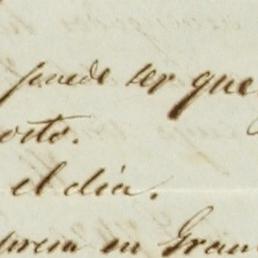 puede ser que
osto.
el dia.
en Gran